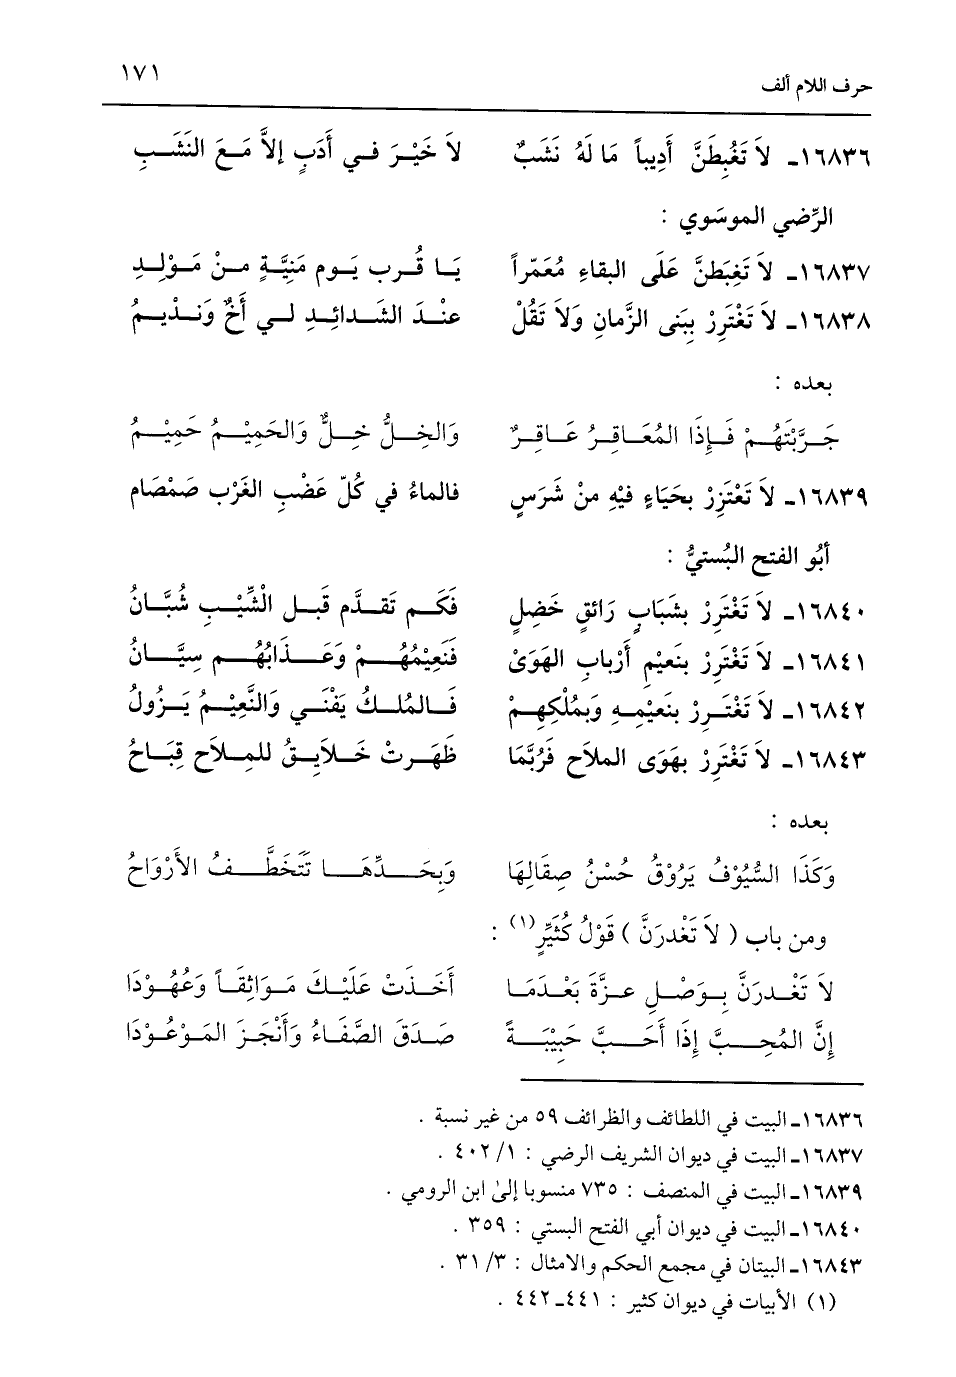 حرف اللام ألف ١٧١
١٦٨٣٦ـ لاَ تَغْبِطَنَّ أَدِيباً مَا لَهُ نَشَبٌ لاَ خَيْرَ فِي أَدَبٍ إلاَّ مَعَ النَشَبِ
الرِّضي الموسَوي :
١٦٨٣٧ـ لاَ تَغِبَطنَّ عَلَى البقاءِ مُعَمّراً يَا قُرب يَوم مَنِيَّةٍ منْ مَوْلِدِ
١٦٨٣٨ـ لاَ تَغْتَرِرْ بِبَنى الزَّمانِ وَلاَ تَقُلْ عنْدَ الشَدائِدِ لي أَخٌ وَنذْيمُ
بعده :
جَرَّبْتَهُمْ فَإِذَا المُعَاقِرُ عَاقِرٌ وَالخِلُّ خِلٌّ وَالحَمِيْمُ حَمِيْمُ
١٦٨٣٩ـ لاَ تَغْتَرِرْ بحَيَاءٍ فيْهِ منْ شَرَسٍ فالماءُ في كُلّ عَضْبِ الغَرْب صَمْصَام
أبُو الفتح البُستيُّ :
١٦٨٤٠ـ لاَ تَغْتَرِرْ بشَبابٍ رَائقٍ خَضلٍ فَكَم تَقدَّم قبل الْشِّيْبِ شُبَّانُ
١٦٨٤١ـ لاَ تَغْتَرِرْ بنَعيْم أَرْبابِ الهَوَىْ فَنَعِيْمُهُمْ وَعَذَابُهُم سِيَّانُ
١٦٨٤٢ـ لاَ تَغْتَرِرْ بنَعيْمِهِ وَبِمُلْكِهِمْ فَالمُلكُ يَفْنَي وَالنَّعِيْمُ يَزُولُ
١٦٨٤٣ـ لاَ تَغْتَرِرْ بهَوَى الملاَح فَرُبَّمَا ظَهَرتْ خَلاَيِقُ للمِلاَح قِبَاحُ
بعده :
وَكَذَا السُّيُوْفُ يَرُوْقُ حُسْنُ صِقَالِهَا وَبِحَدِّهَا تَتَخَطَّفُ الأَرْوَاحُ
ومن باب ( لاَ تَغْدرَنَّ ) قَوْلُ كُثَيِّرٍ(١) :
لاَ تَغْدرَنَّ بوَصْلِ عزَّةَ بَعْدَمَا أَخَذَتْ عَلَيْكَ مَوَاثِقَاً وَعُهُوْدَا
إنَّ المُحِبَّ إذَا أَحَبَّ حَبِيْبَةً صَدَقَ الصَّفَاءُ وَأَنْجَزَ المَوْعُوْدَا
١٦٨٣٦ـ البيت في اللطائف والظرائف ٥٩ من غير نسبة .
١٦٨٣٧ـ البيت في ديوان الشريف الرضي : ١/ ٤٠٢ .
١٦٨٣٩ـ البيت في المنصف : ٧٣٥ منسوبا إلىٰ ابن الرومي .
١٦٨٤٠ـ البيت في ديوان أبي الفتح البستي : ٣٥٩ .
١٦٨٤٣ـ البيتان في مجمع الحكم والامثال : ٣/ ٣١ .
(١) الأبيات في ديوان كثير : ٤٤١ـ ٤٤٢ .